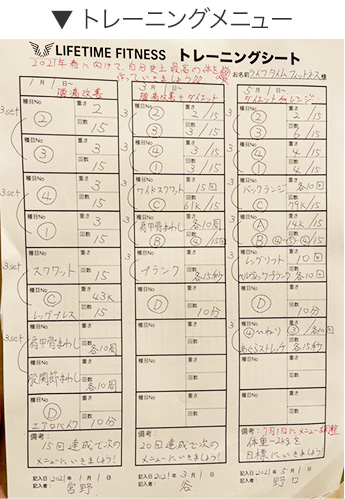 ▼ トレーニングメニュー
LIFETIME FITNESS トレーニングシート
2021年春に向けて、自分史上最高の体を
作っていきましょう
お名前 ライフタイムフィットネス様
1月1日〜
腰痛改善
3set
種目No 重さ 2
② 回数 15
種目No 重さ 3
③ 回数 15
3set
種目No 重さ 3
④ 回数 15
種目No 重さ 3
① 回数 15
3set
種目No 重さ
スクワット 回数 15
種目No 重さ 43K
Ⓒ レッグプレス 回数 15
3set
種目No 重さ
肩甲骨まわし 回数 各10周
種目No 重さ
股関節まわし 回数 各10周
種目No Ⓓ 重さ
エアロバイク 回数 10分
備考:
15回達成で次の
メニューにいきましょう!
記入日 2021年1月1日
記入者 宮野
3月1日〜
腰痛改善+ダイエット
3
種目No 重さ 2/15
② 回数
③ 3/15
④ 4/15
① 3/15
3
種目No 重さ
ワイドスクワット 15回
Ⓒ 回数 15
3
肩甲骨まわし 各10周
Ⓑ
3
種目No 重さ
プランク 回数 各15秒
種目No 重さ
Ⓓ 回数 10分
備考:
20回達成で次の
メニューにいきましょう!
記入日 2021年3月1日
記入者 谷
5月1日〜
ダイエットチャレンジ
3
② 2/15
③ 6/15
3
④ 4/15
① 4/15
3
バックランジ 各10回
Ⓒ 79K/15
3
Ⓐ 14K/15
Ⓑ
3
レッグツイスト 10回
Ⓓ 10分
各10周
ストレッチ 各15秒
備考: 7月1日にメニュー調整
体重-2kgを
目標にいきましょう!
記入日 2021年5月1日
記入者 野口